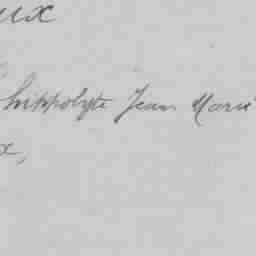 ux
hippolyte Jean Marie
x,